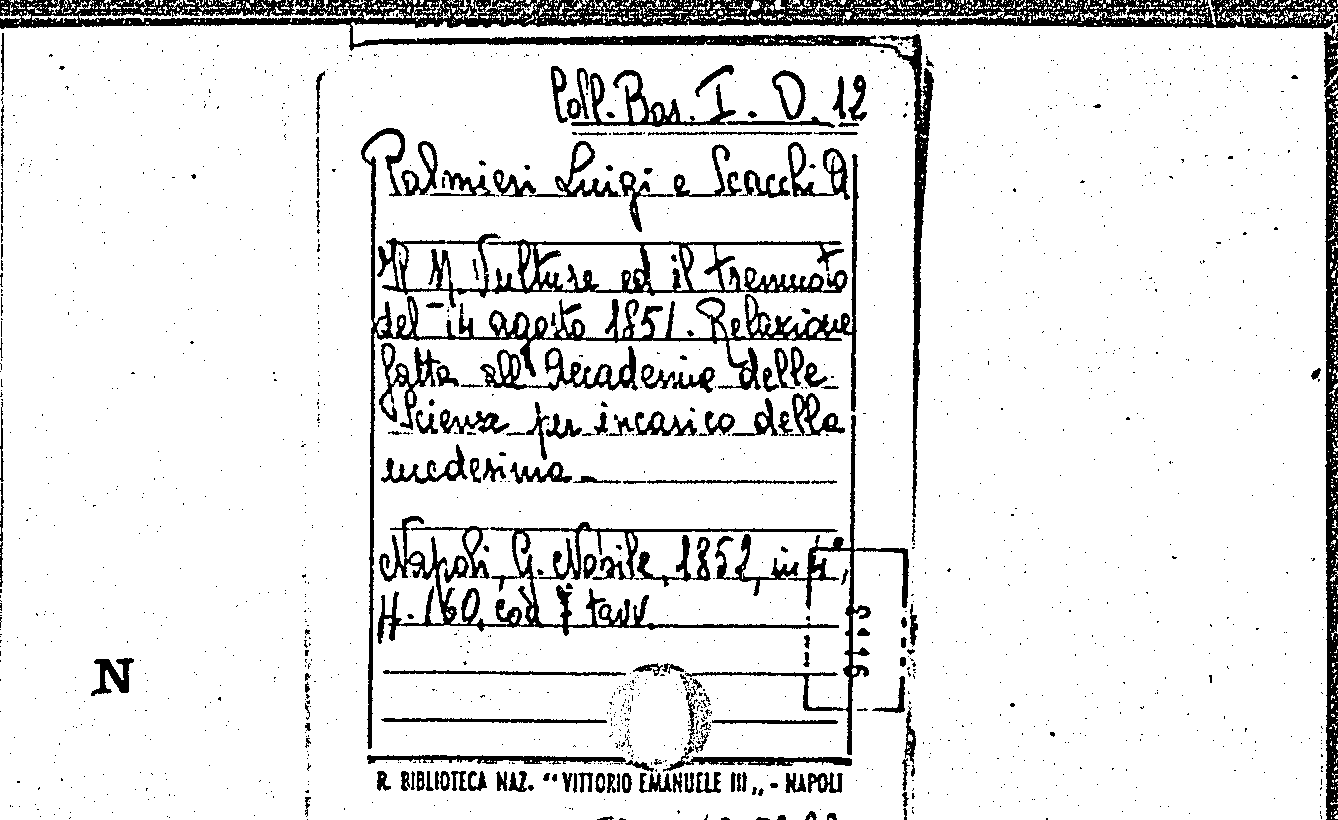 Coll. Bas. I. D. 12
Palmieri Luigi e Scacchi A
Il M. Vulture ed il tremuoto
del 14 agosto 1851. Relazione
fatta all'Accademia delle
Scienze per incarico della
medesima.
Napoli, G. Nobile, 1852, in 4°,
pp. 160, con 7 tavv.
9116
N
R. BIBLIOTECA NAZ. “VITTORIO EMANUELE III„ - NAPOLI